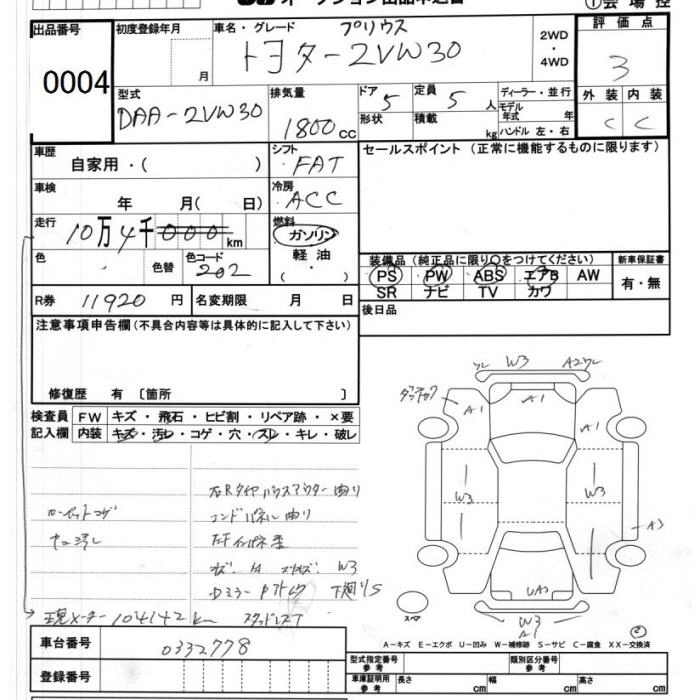 出品番号
0004
初度登録年月
月
車名・グレード
プリウス
トヨタ - ZVW30
2WD
・
4WD
評価点
3
外装 内装
C C
型式
DAA - ZVW30
排気量
1800cc
ドア 5
定員 5人
形状
積載 kg
ディーラー・並行
モデル年式 年
ハンドル 左・右
車歴
自家用・( )
シフト
FAT
セールスポイント (正常に機能するものに限ります)
車検
年 月( 日)
冷房
ACC
走行
10万4千000km
燃料
ガソリン
軽油
・
( )
色
色替
色コード
202
装備品 (純正品に限り○をつけてください)
PS PW ABS エアB AW
SR ナビ TV カワ
新車保証書
有・無
R券 11920円
名変期限 月 日
後日品
注意事項申告欄 (不具合内容等は具体的に記入して下さい)
修復歴 有〔箇所 〕
検査員
記入欄
FW キズ・飛石・ヒビ割・リペア跡・×要
内装 キズ・汚レ・コゲ・穴・スレ・キレ・破レ
右Rタイヤハウスアウター曲り
エンドパネル曲り
W3
下廻りS
現メーター 104142km スタッドレスT
W3
A2
A1
A1
A1
W3
W3
A3
UA2
W3
A1
スペア
A-キズ E-エクボ U-凹み W-補修跡 S-サビ C-腐食 XX-交換済
車台番号 0332778
登録番号
型式指定番号
参考
類別区分番号
参考
車庫証明用
参考
長さ cm
幅 cm
高さ cm